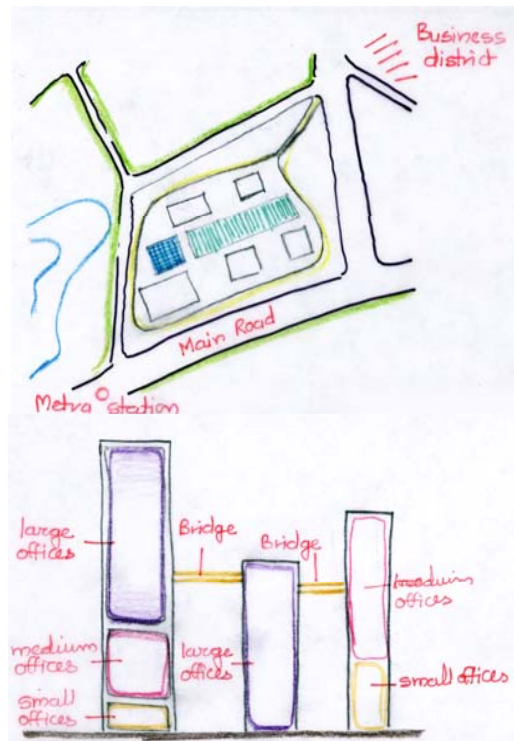 Business
district
Main Road
Metro station
large
offices
Bridge
Bridge
medium
offices
medium
offices
large
offices
small
offices
small offices